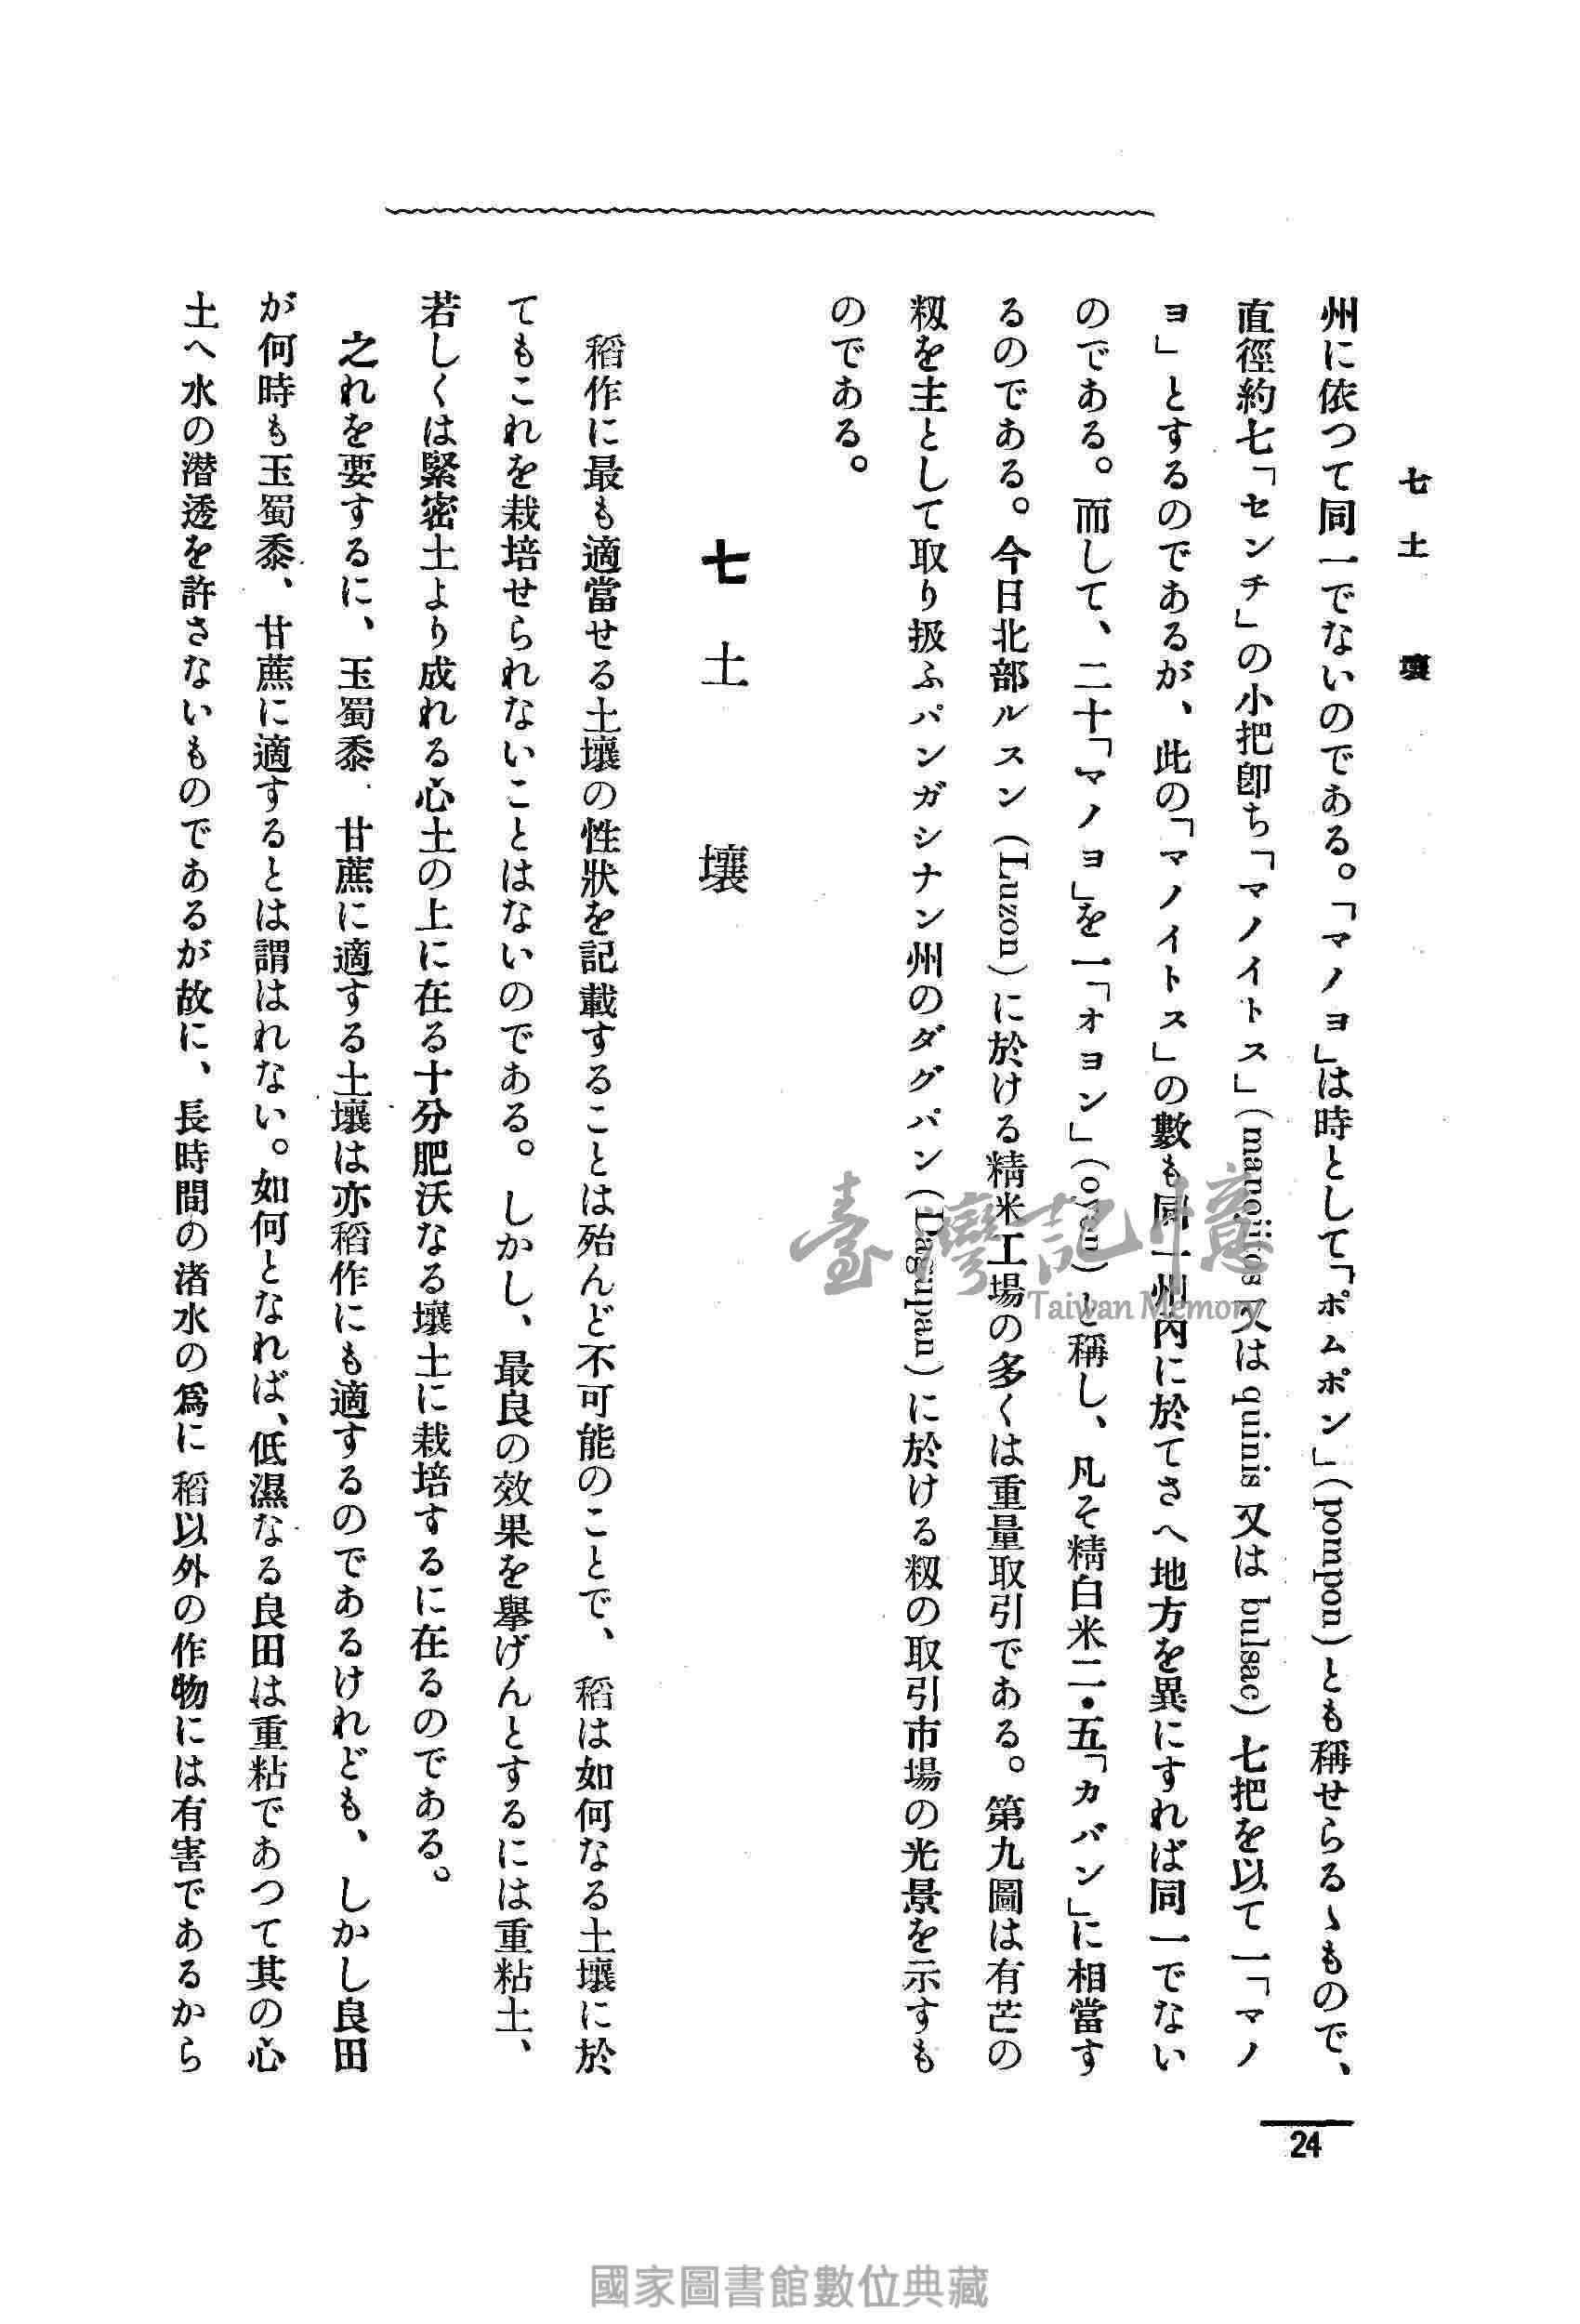 七 土 壤
州に依つて同一でないのである。「マノヨ」は時として「ポムポン」(pompon)とも稱せらるゝもので、
直徑約七「センチ」の小把卽ち「マノイトス」(manojitos 又は quinis 又は bulsac)七把を以て一「マノ
ヨ」とするのであるが、此の「マノイトス」の數も同一州内に於てさへ地方を異にすれば同一でない
のである。而して、二十「マノヨ」を一「オヨン」(oyon)と稱し、凡そ精白米二・五「カバン」に相當す
るのである。今日北部ルスン(Luzon)に於ける精米工場の多くは重量取引である。第九圖は有芒の
籾を主として取り扱ふパンガシナン州のダグパン(Dagupan)に於ける籾の取引市場の光景を示すも
のである。
七 土 壤
稻作に最も適當せる土壤の性狀を記載することは殆んど不可能のことで、稻は如何なる土壤に於
てもこれを栽培せられないことはないのである。しかし、最良の效果を擧げんとするには重粘土、
若しくは緊密土より成れる心土の上に在る十分肥沃なる壤土に栽培するに在るのである。
之れを要するに、玉蜀黍、甘蔗に適する土壤は亦稻作にも適するのであるけれども、しかし良田
が何時も玉蜀黍、甘蔗に適するとは謂はれない。如何となれば、低濕なる良田は重粘であつて其の心
土へ水の潛透を許さないものであるが故に、長時間の渚水の爲に稻以外の作物には有害であるから
24
臺灣記憶
Taiwan Memory
國家圖書館數位典藏